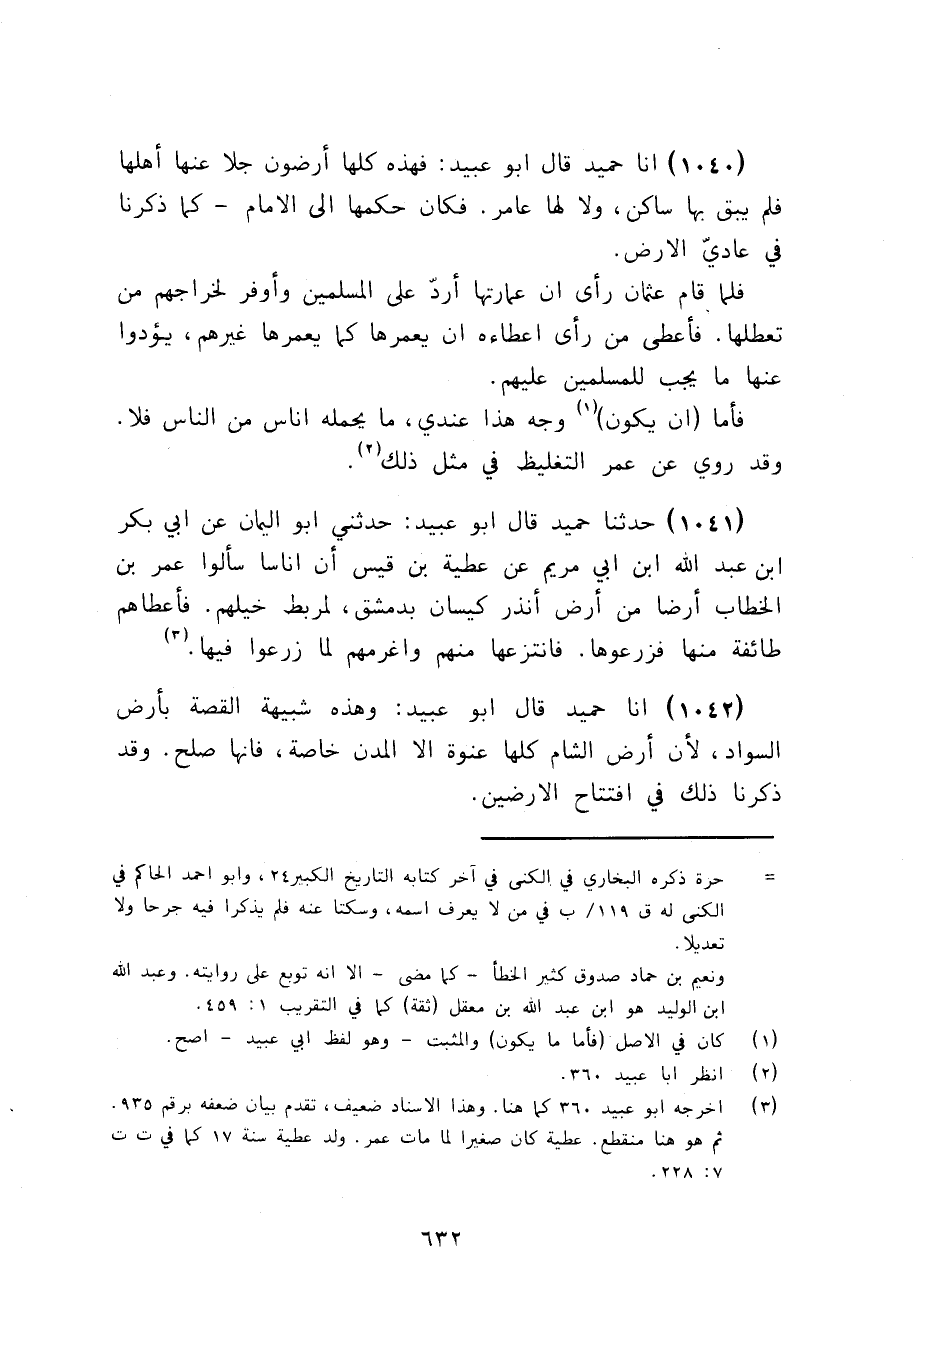 (١٠٤٠) انا حميد قال ابو عبيد: فهذه كلها أرضون جلا عنها أهلها
فلم يبق بها ساكن، ولا لها عامر. فكان حكمها الى الامام - كما ذكرنا
في عاديّ الارض.
فلما قام عثمان رأى ان عمارتها أردّ على المسلمين وأوفر لخراجهم من
تعطلها. فأعطى من رأى اعطاءه ان يعمرها كما يعمرها غيرهم، يؤدوا
عنها ما يجب للمسلمين عليهم.
فأما (ان يكون)(١) وجه هذا عندي، ما يحمله اناس من الناس فلا.
وقد روي عن عمر التغليظ في مثل ذلك(٢).
(١٠٤١) حدثنا حميد قال ابو عبيد: حدثني ابو اليمان عن ابي بكر
ابن عبد الله ابن ابي مريم عن عطية بن قيس أن اناسا سألوا عمر بن
الخطاب أرضا من أرض أنذر كيسان بدمشق، لمربط خيلهم. فأعطاهم
طائفة منها فزرعوها. فانتزعها منهم واغرمهم لما زرعوا فيها.(٣)
(١٠٤٢) انا حميد قال ابو عبيد: وهذه شبيهة القصة بأرض
السواد، لأن أرض الشام كلها عنوة الا المدن خاصة، فانها صلح. وقد
ذكرنا ذلك في افتتاح الارضين.
= حرة ذكره البخاري في الكنى في آخر كتابه التاريخ الكبير٢٤، وابو احمد الحاكم في
الكنى له ق ١١٩/ ب في من لا يعرف اسمه، وسكتا عنه فلم يذكرا فيه جرحا ولا
تعديلا.
ونعيم بن حماد صدوق كثير الخطأ - كما مضى - الا انه توبع على روايته. وعبد الله
ابن الوليد هو ابن عبد الله بن معقل (ثقة) كما في التقريب ١: ٤٥٩.
(١) كان في الاصل (فأما ما يكون) والمثبت - وهو لفظ ابي عبيد - اصح.
(٢) انظر ابا عبيد ٣٦٠.
(٣) اخرجه ابو عبيد ٣٦٠ كما هنا. وهذا الاسناد ضعيف، تقدم بيان ضعفه برقم ٩٣٥.
ثم هو هنا منقطع. عطية كان صغيرا لما مات عمر. ولد عطية سنة ١٧ كما في ت ت
٧: ٢٢٨.
٦٣٢